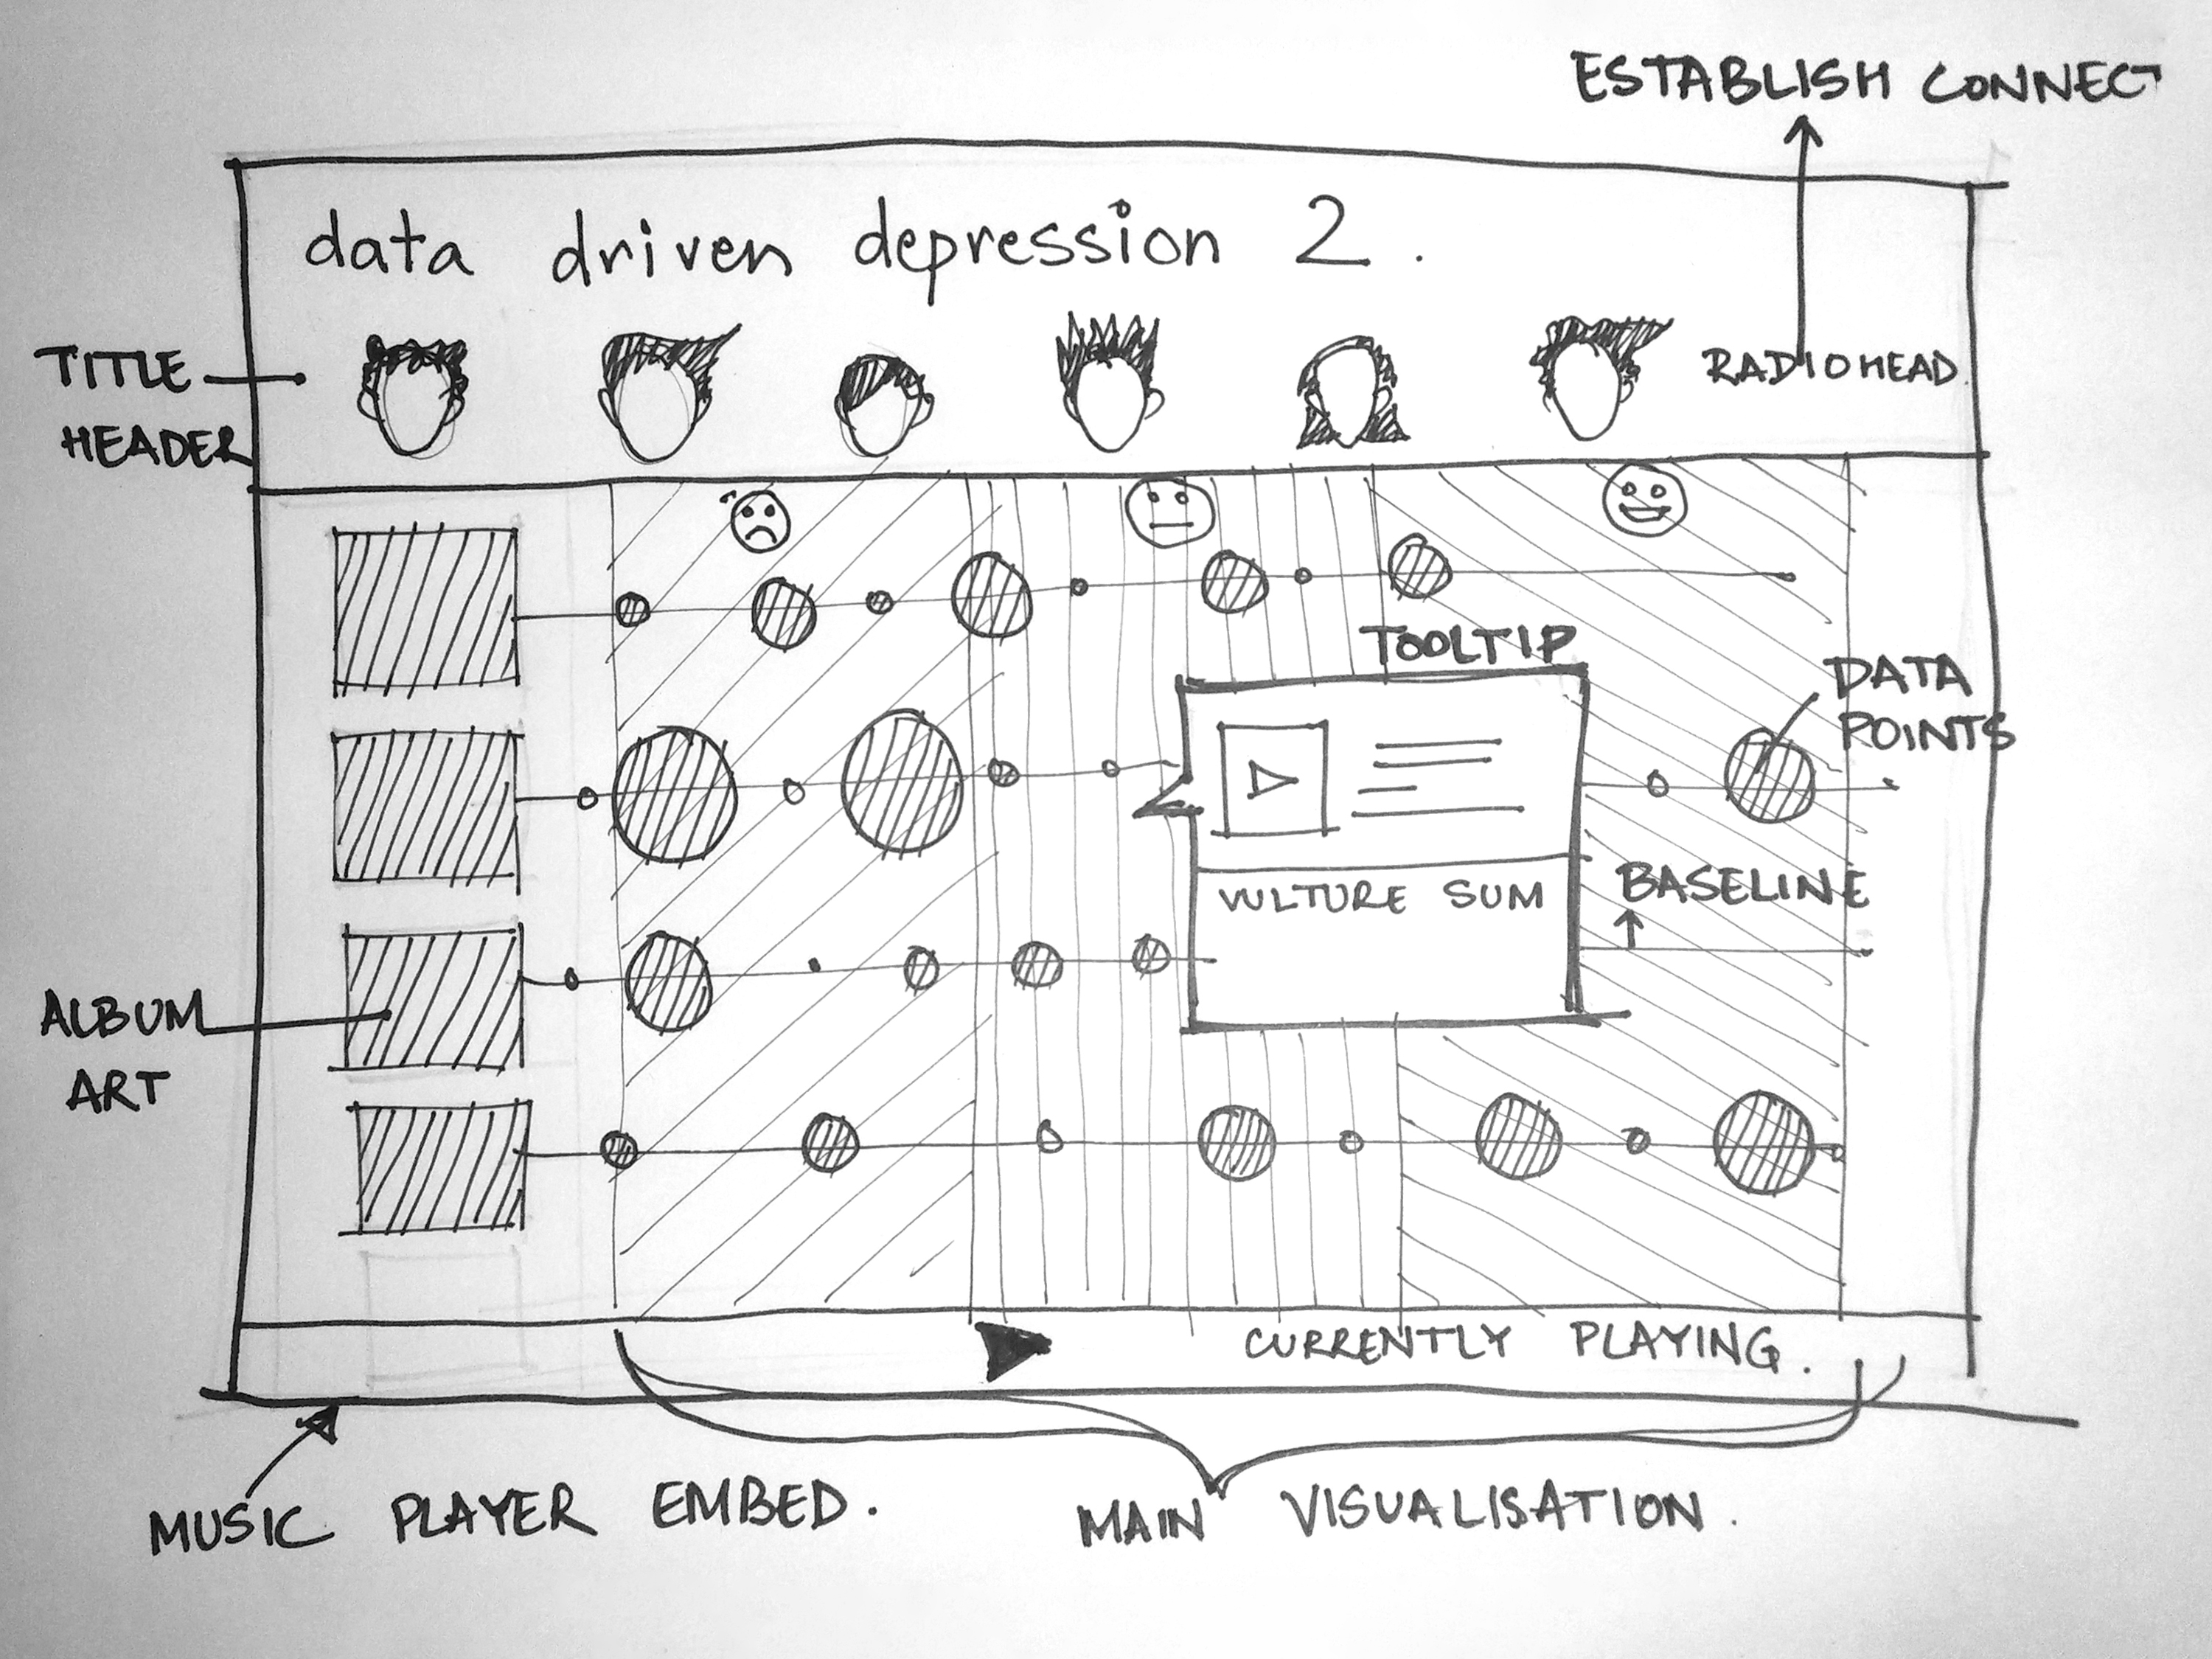 ESTABLISH CONNECT
data driven depression 2.
TITLE
HEADER
RADIOHEAD
TOOLTIP
DATA
POINTS
VULTURE SUM
BASELINE
ALBUM
ART
CURRENTLY PLAYING.
MUSIC PLAYER EMBED.
MAIN VISUALISATION.